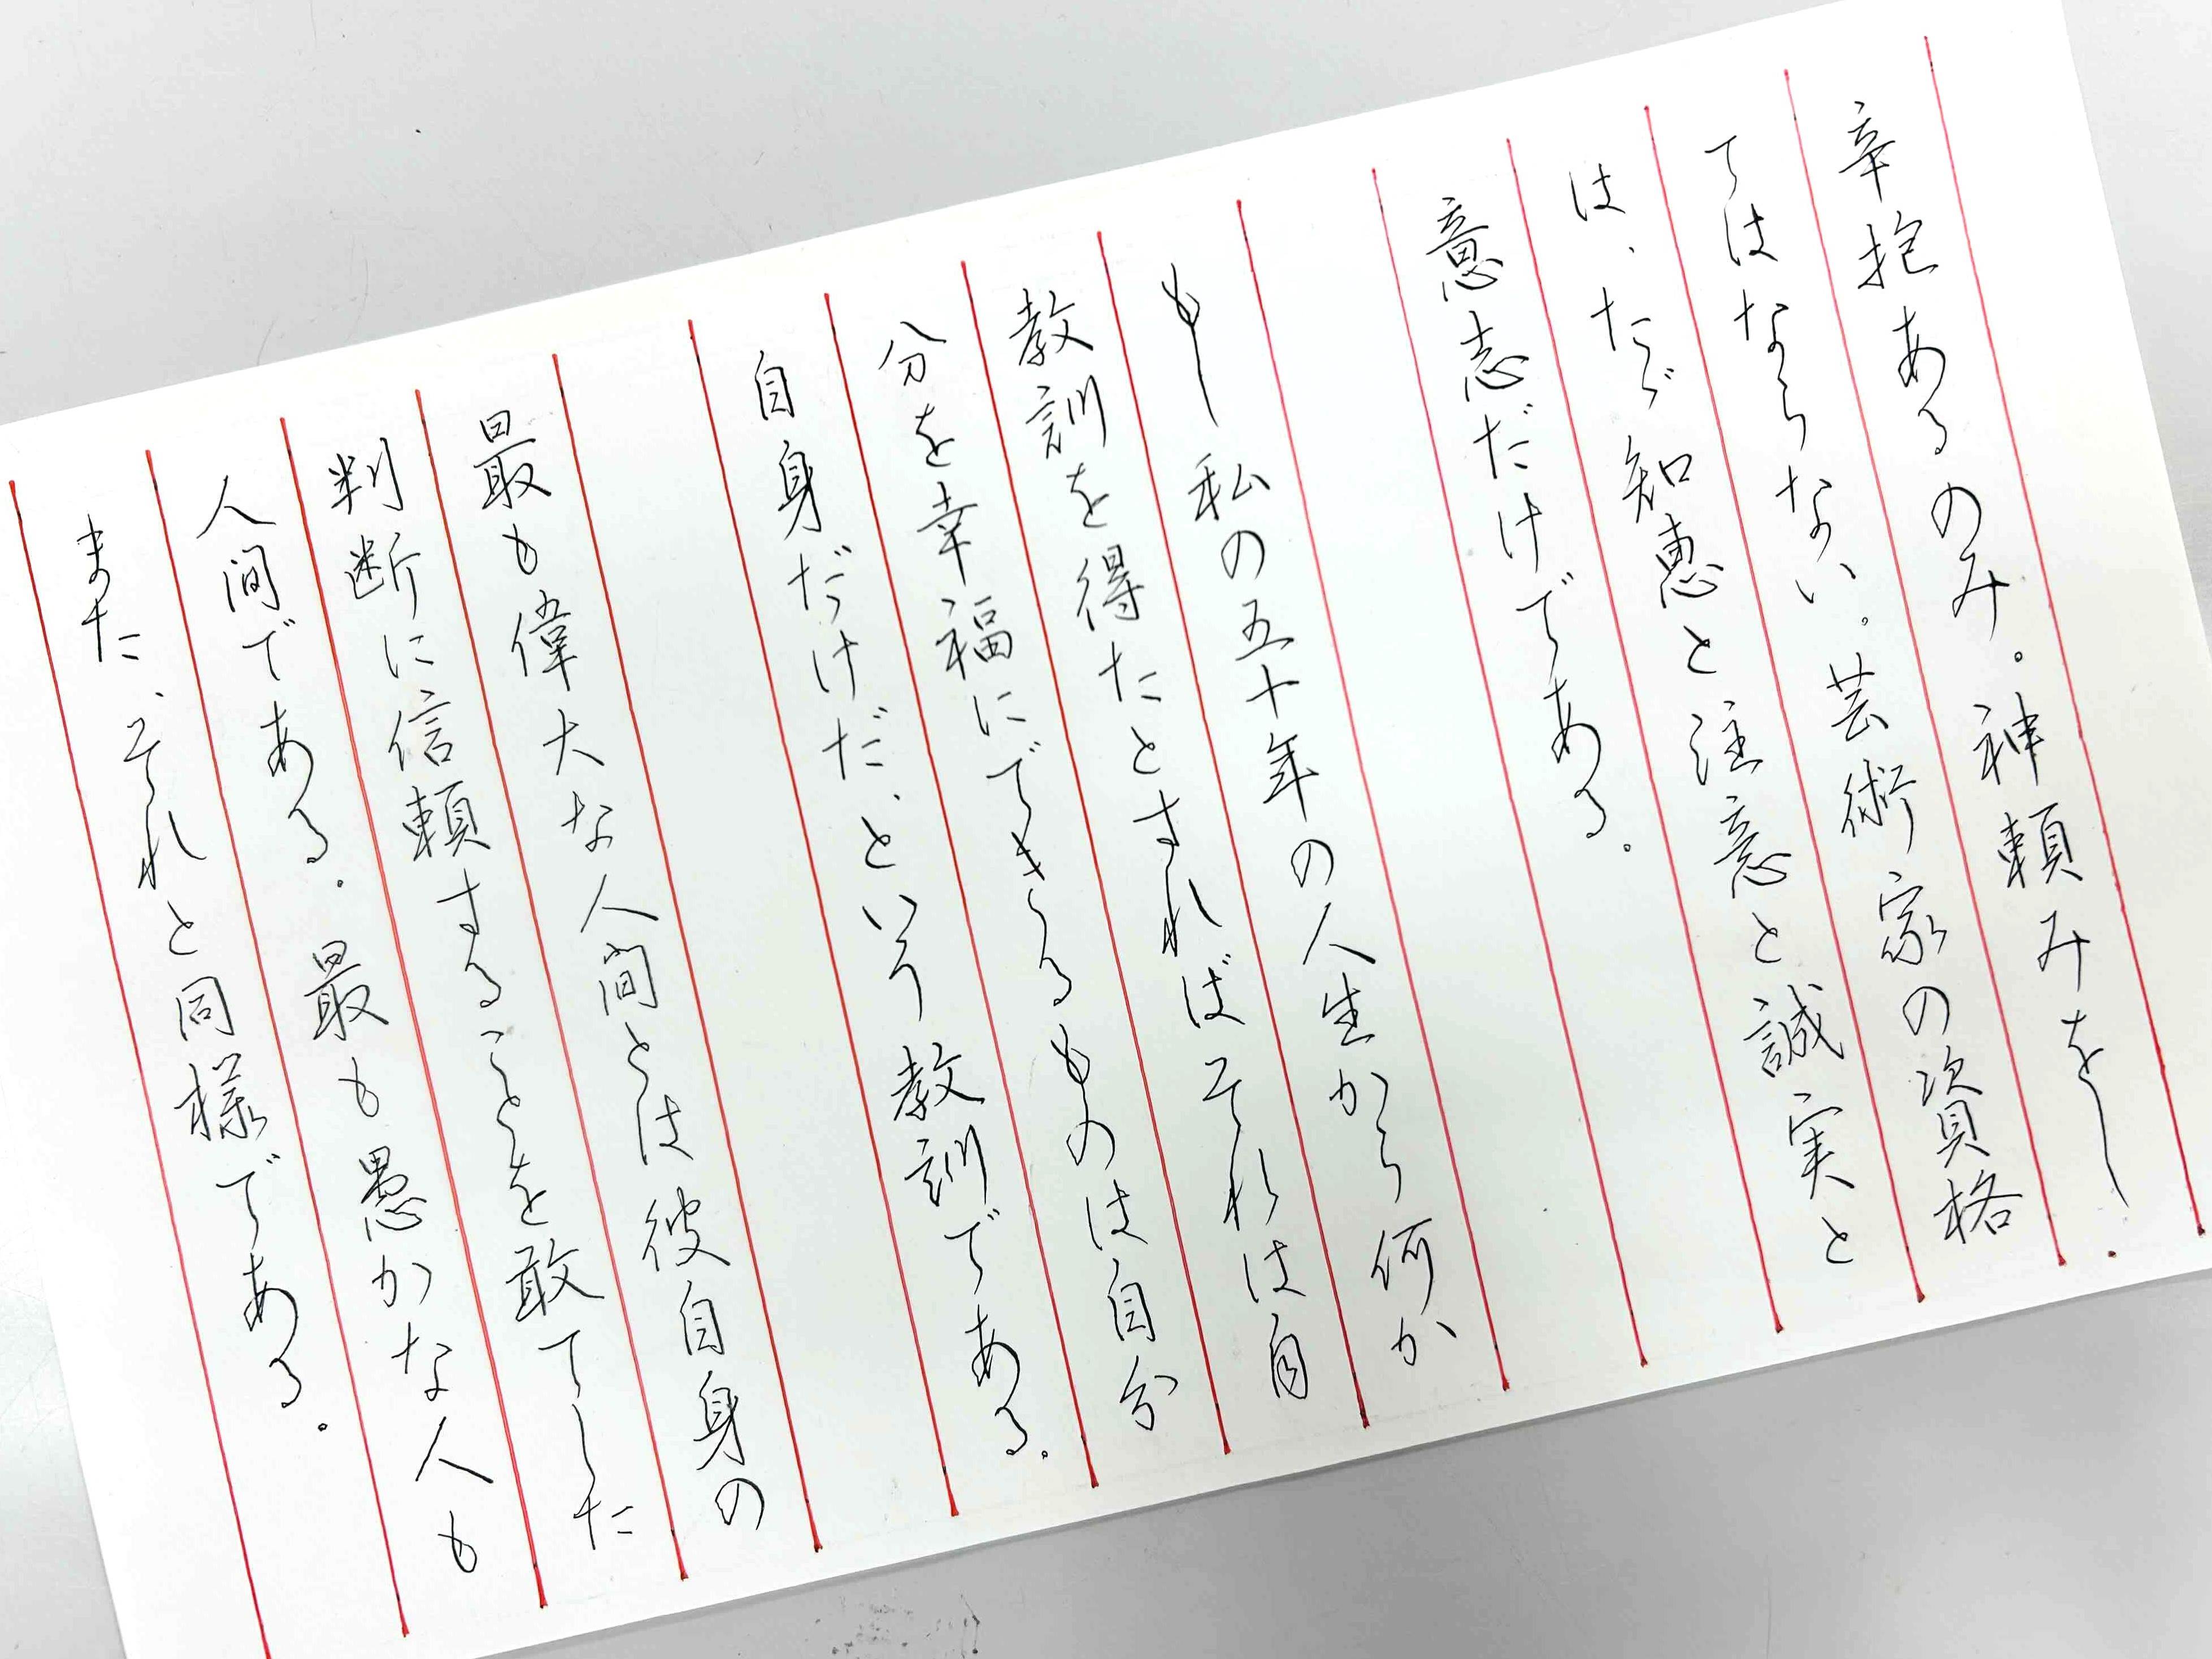 辛抱あるのみ。神頼みをし
てはならない。芸術家の資格
は、たゞ知恵と注意と誠実と
意志だけである。
もし私の五十年の人生から何か
教訓を得たとすればそれは自
分を幸福にできるものは自分
自身だけだ、という教訓である。
最も偉大な人間とは彼自身の
判断に信頼することを敢てした
人間である。最も愚かな人も
また、それと同様である。